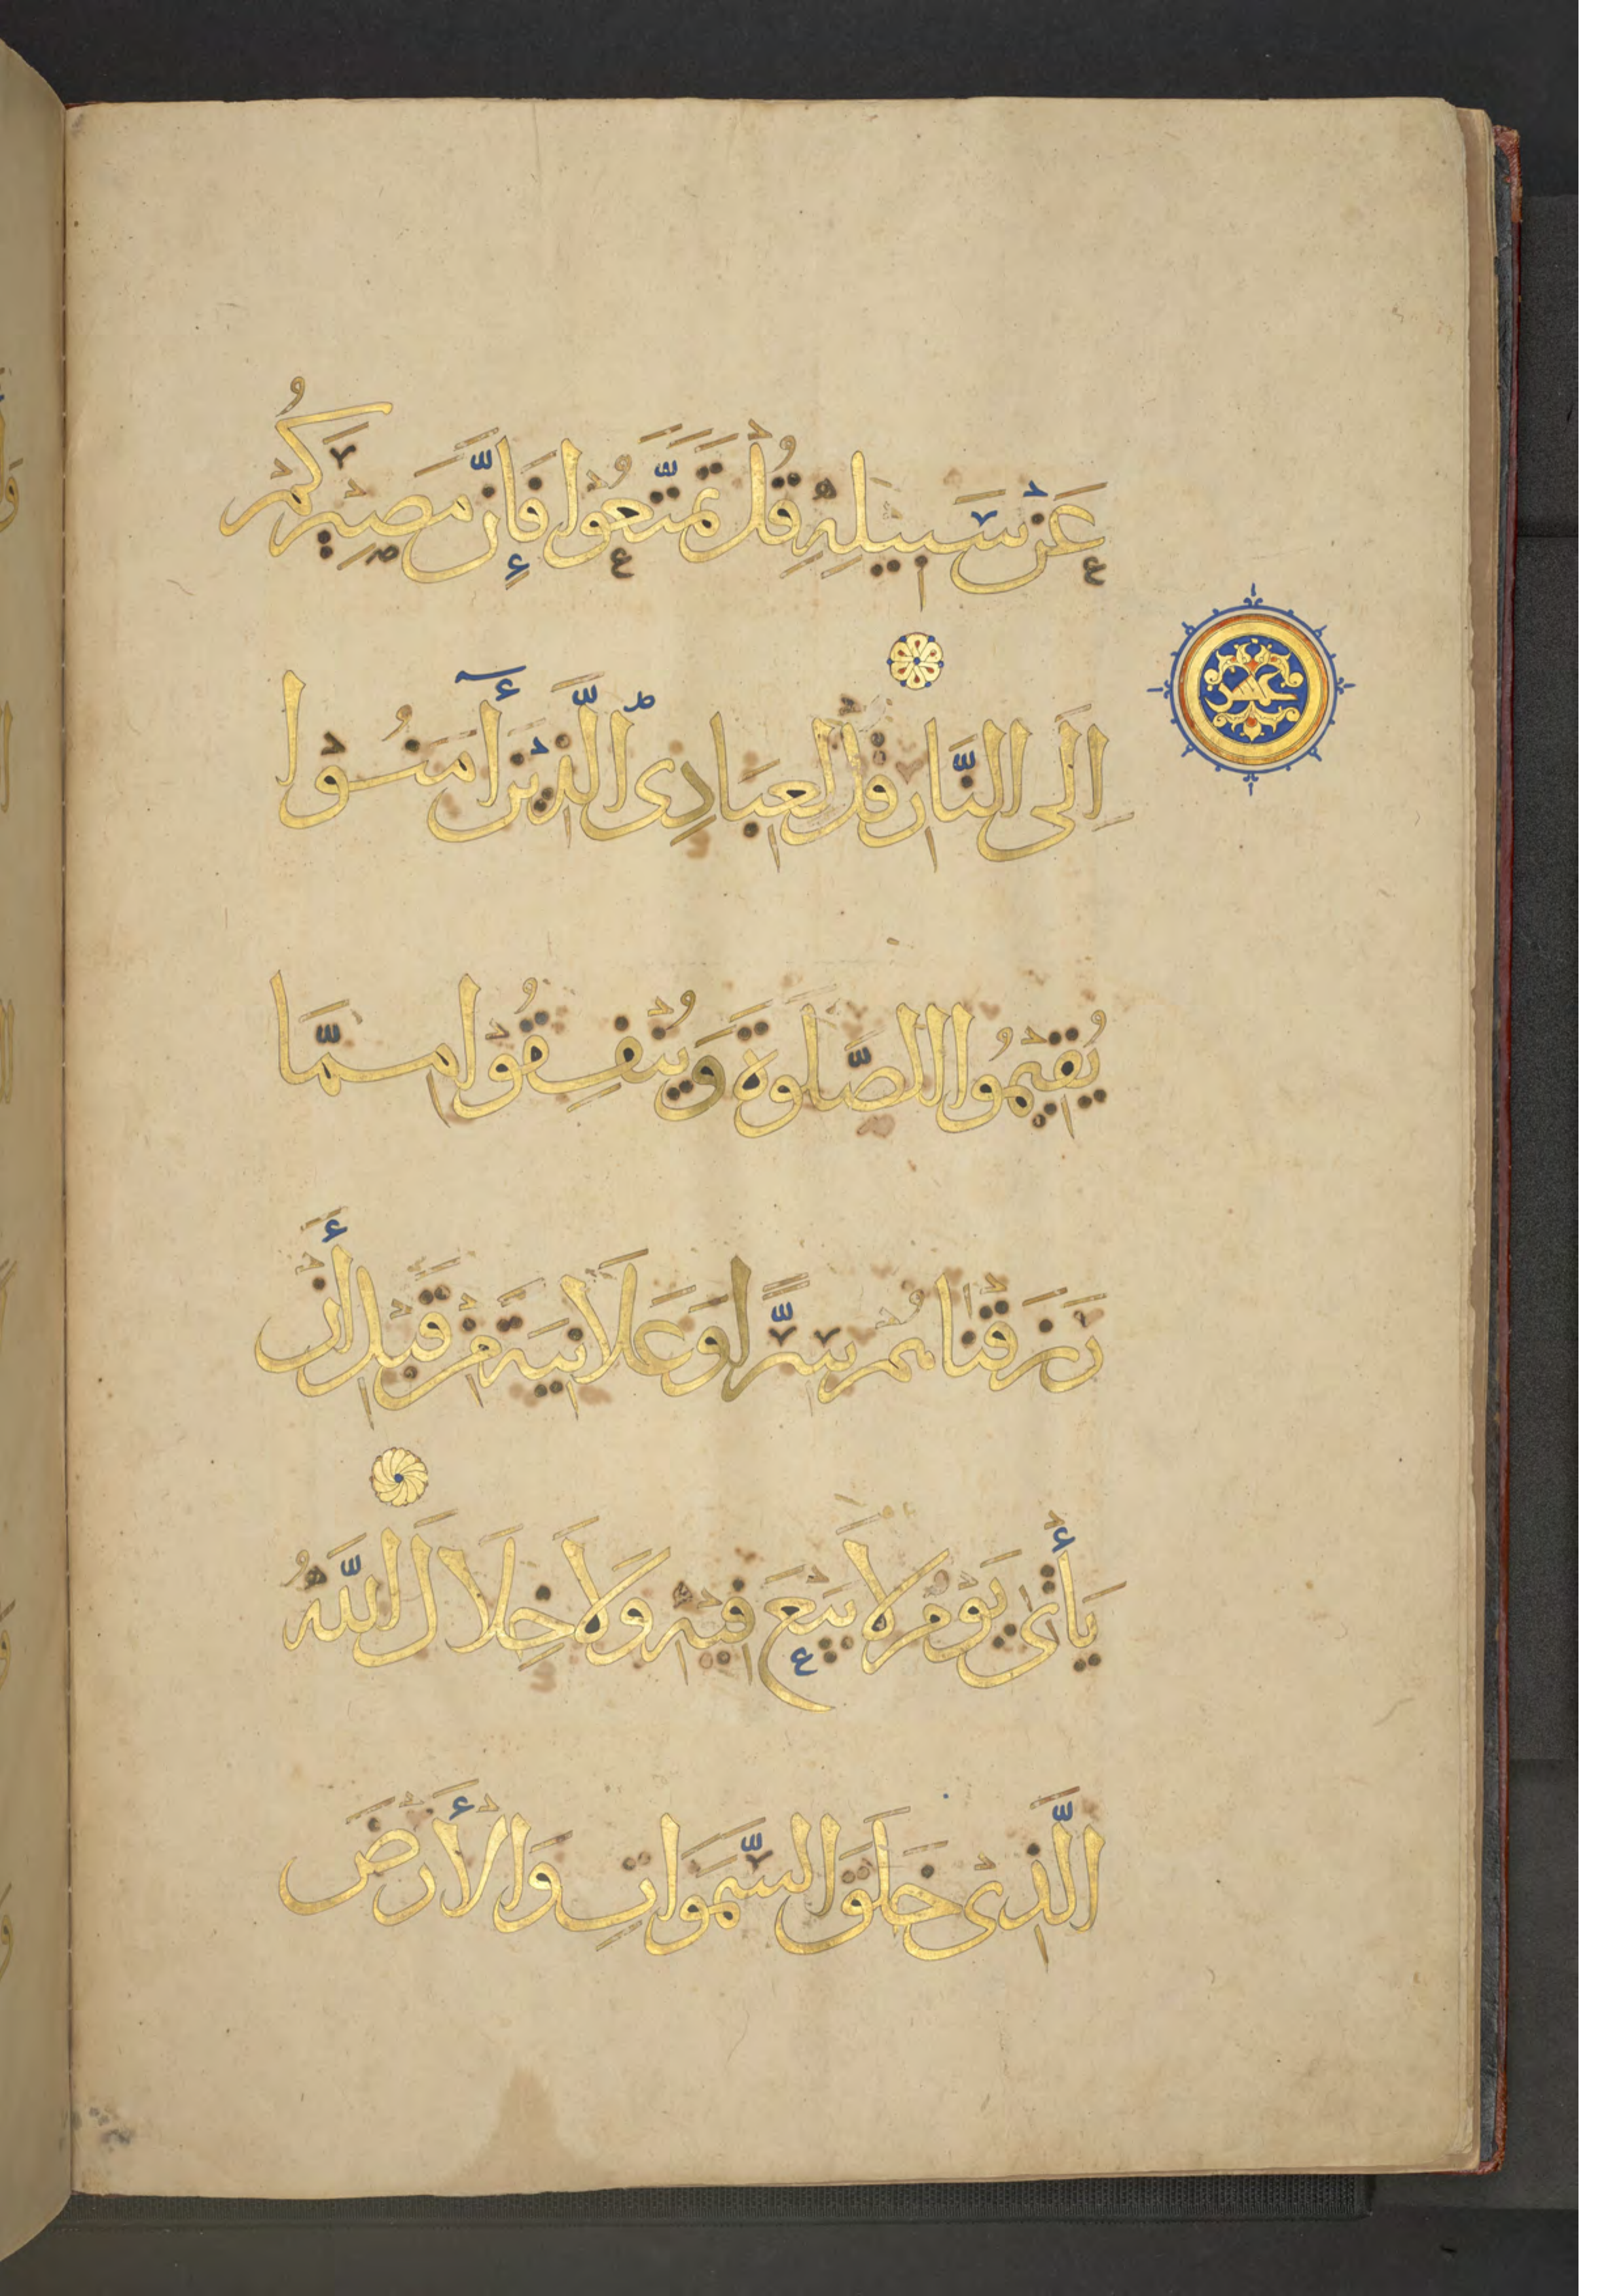 عَنْ سَبِيلِهِ قُلْ تَمَتَّعُوْا فَإِنَّ مَصِيْرَكُمْ
عشر
اِلَى النَّارِ قُلْ لِعِبَادِى الَّذِيْنَ أٓمَنُوْا
يُقِيْمُوا الصَّلَوةَ وَيُنْفِقُوْا مِمَّا
رَزَقْنَاهُمْ سِرًّا وَعَلَانِيَةً مِنْ قَبْلِ أَنْ
يَأْتِىَ يَوْمٌ لَا بَيْعَ فِيْهِ وَلَا خِلَالَ اللَّهُ
الَّذِىْ خَلَقَ السَّمَوَاتِ وَالْأَرْضَ